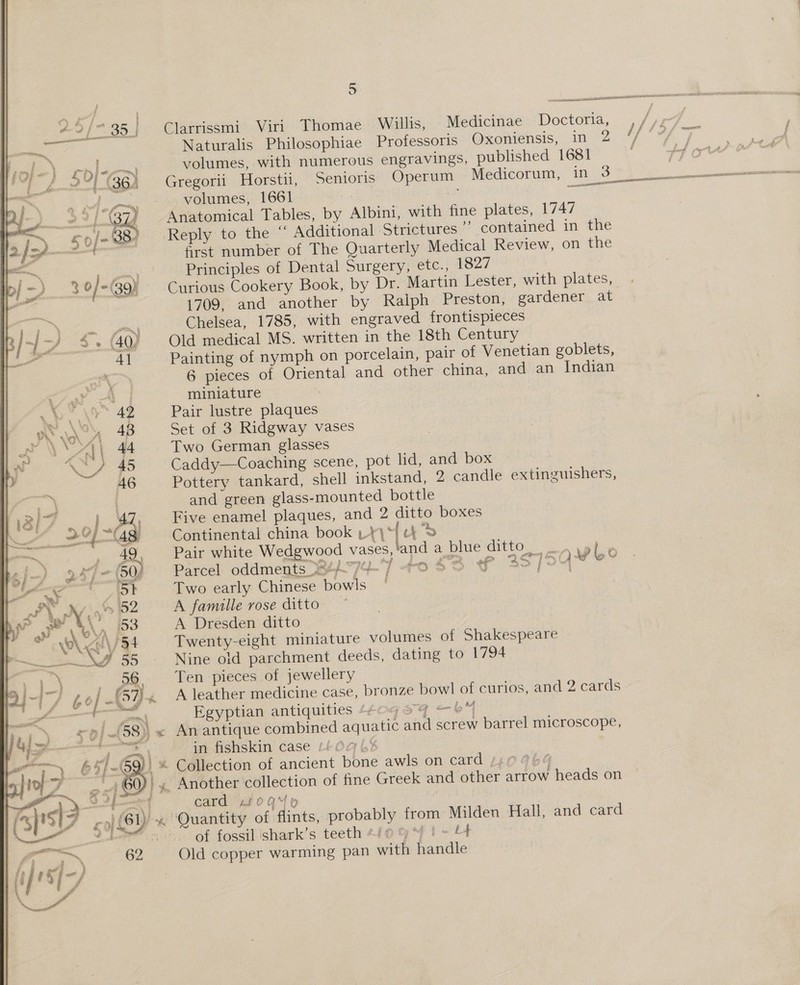 5
25/- 35 Clarrissmi Viri Thomae Willis, Medicinae Doctoria,
Naturalis Philosophiae Professoris Oxoniensis, in 2
volumes, with numerous engravings, published 1681
50/- 36 Gregorii Horstii, Senioris Operum Medicorum, in 3
volumes, 1661
37 Anatomical Tables, by Albini, with fine plates, 1747
50/- 38 Reply to the “ Additional Strictures ” contained in the
first number of The Quarterly Medical Review, on the
Principles of Dental Surgery, etc., 1827
30/- 39 Curious Cookery Book, by Dr. Martin Lester, with plates,
1709, and another by Ralph Preston, gardener at
Chelsea, 1785, with engraved frontispieces
40 Old medical MS. written in the 18th Century
41 Painting of nymph on porcelain, pair of Venetian goblets,
6 pieces of Oriental and other china, and an Indian
miniature
42 Pair lustre plaques
43 Set of 3 Ridgway vases
44 Two German glasses
45 Caddy—Coaching scene, pot lid, and box
46 Pottery tankard, shell inkstand, 2 candle extinguishers,
and green glass-mounted bottle
47 Five enamel plaques, and 2 ditto boxes
20/- 48 Continental china book
49 Pair white Wedgwood vases, and a blue ditto
50 Parcel oddments
51 Two early Chinese bowls
52 A famille rose ditto
53 A Dresden ditto
54 Twenty-eight miniature volumes of Shakespeare
55 Nine old parchment deeds, dating to 1794
56 Ten pieces of jewellery
60/- 57 A leather medicine case, bronze bowl of curios, and 2 cards
Egyptian antiquities
50/- 58 An antique combined aquatic and screw barrel microscope,
in fishskin case
65/- 59 Collection of ancient bone awls on card
60 Another collection of fine Greek and other arrow heads on
card
61 Quantity of flints, probably from Milden Hall, and card
of fossil shark’s teeth
62 Old copper warming pan with handle